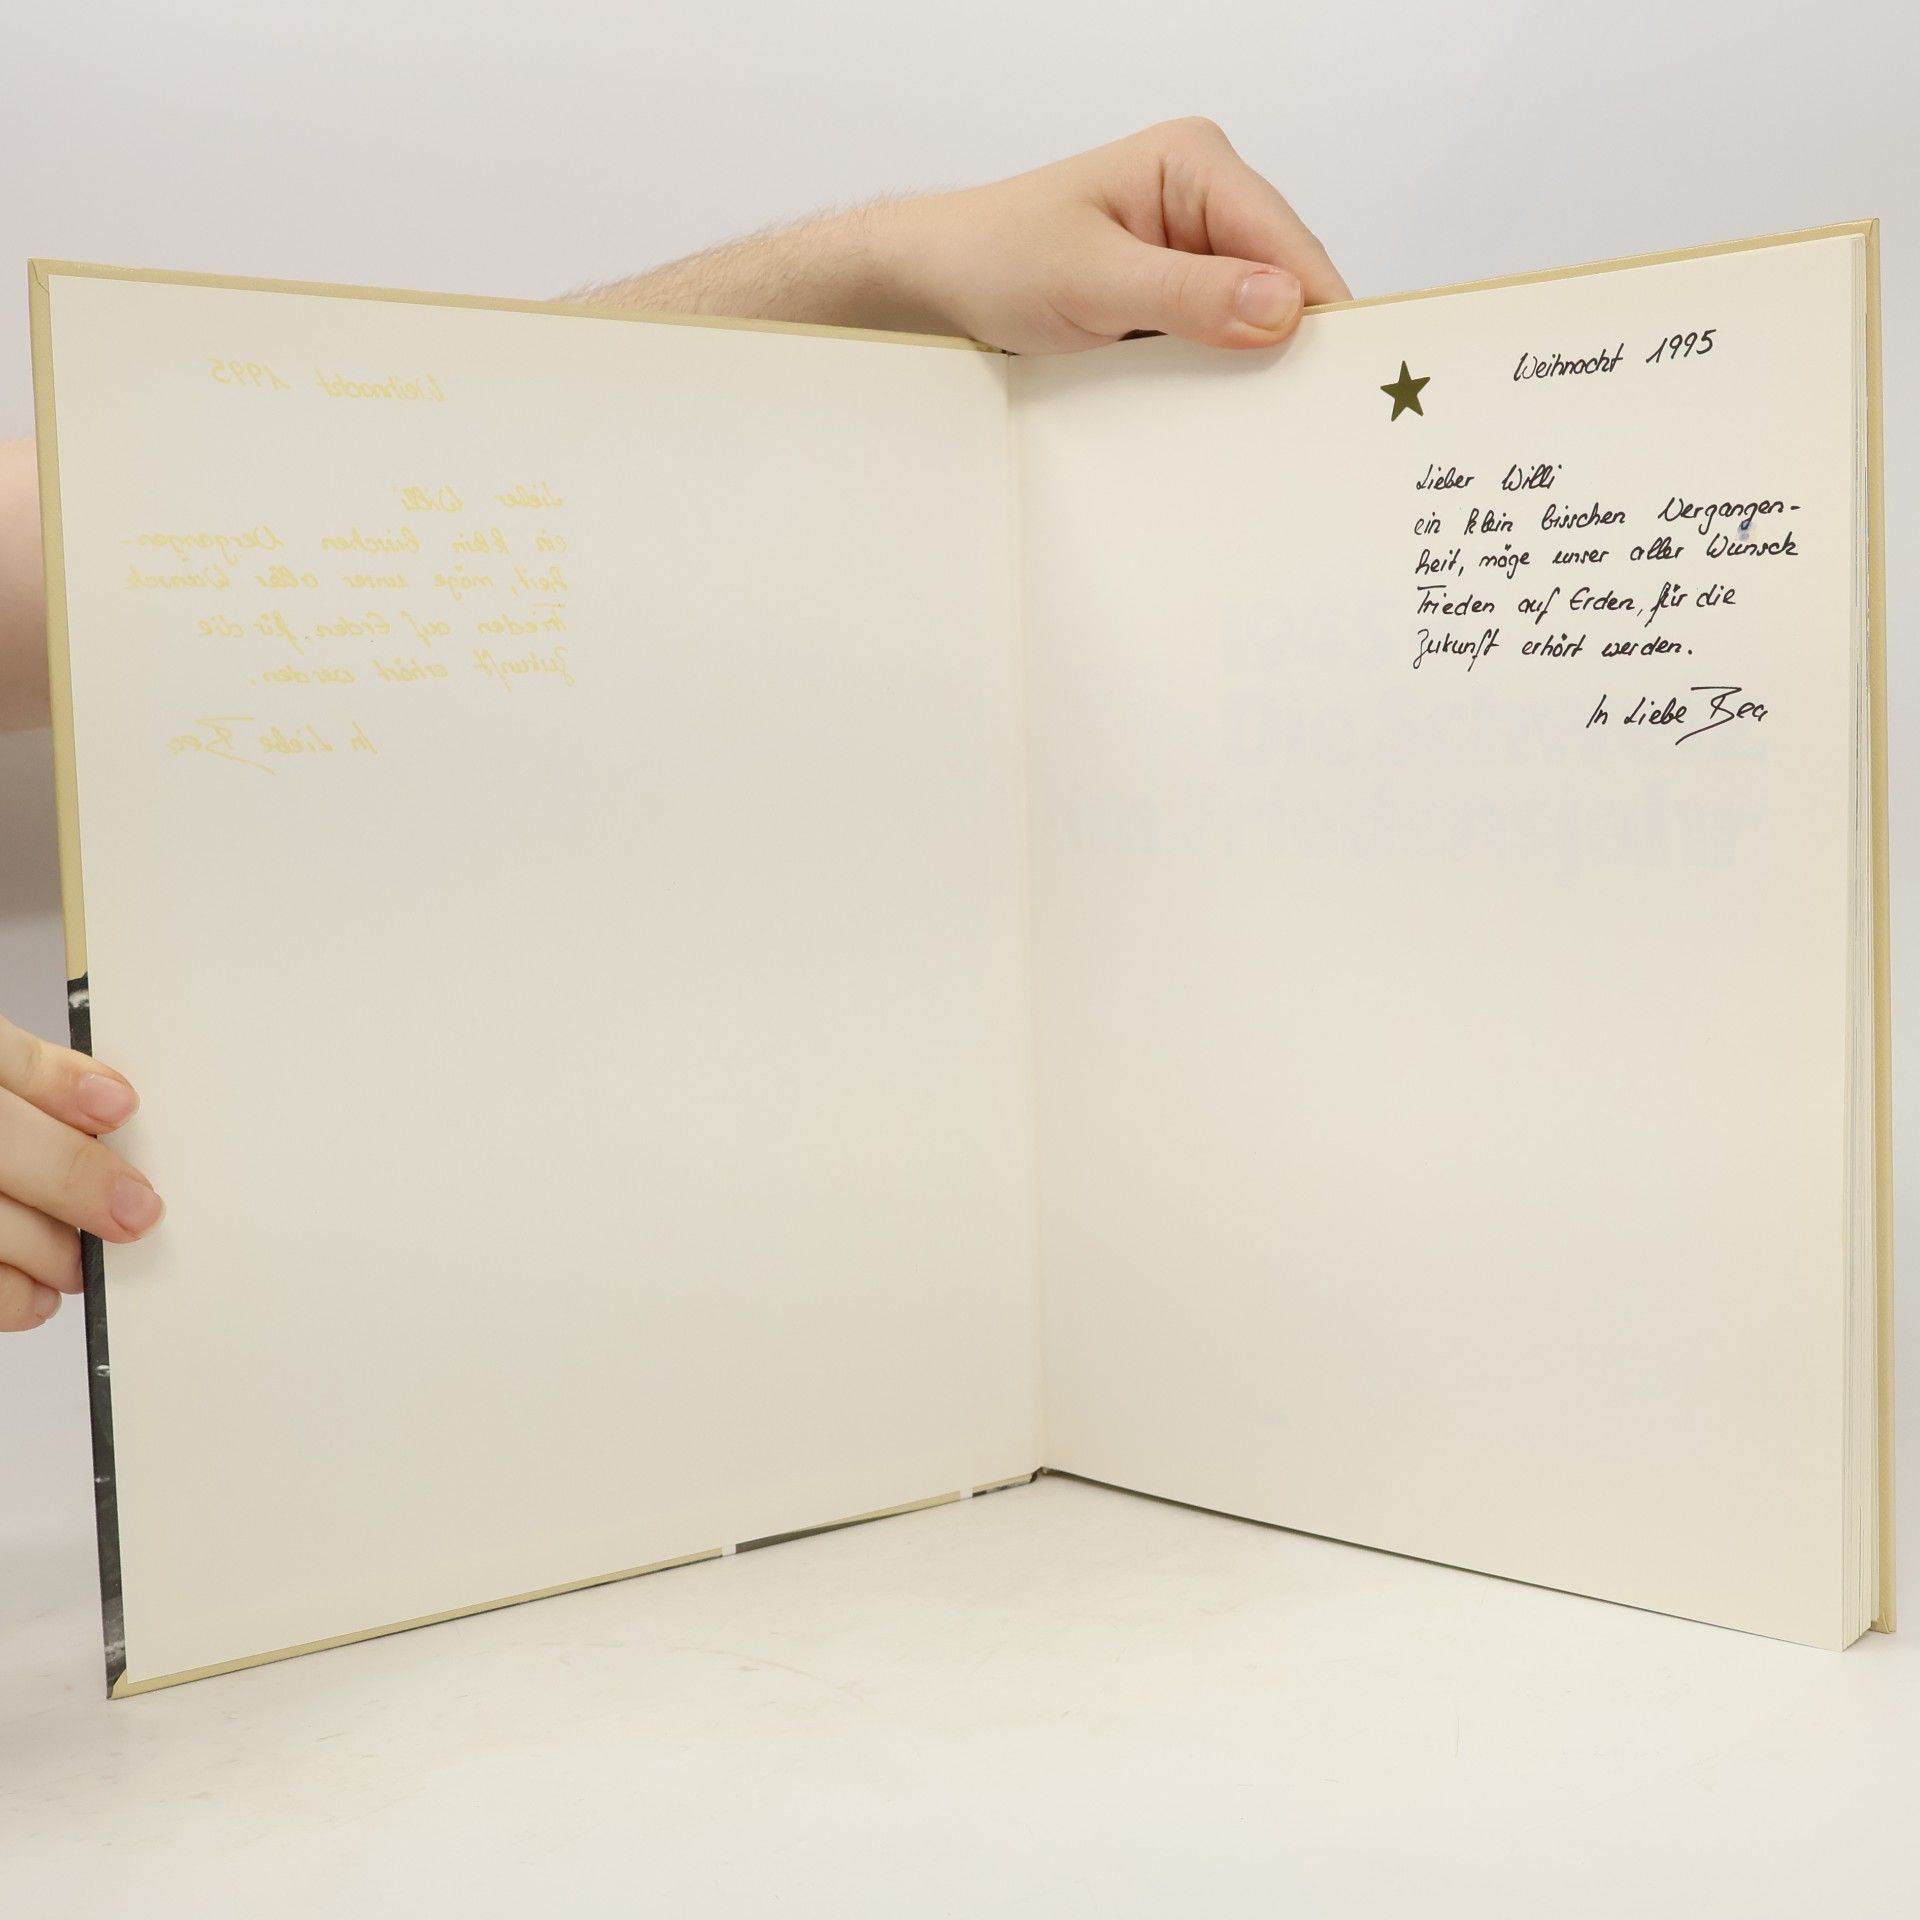 Weihnacht 1995
Lieber Willi
ein klein bisschen Vergangen-
heit, möge unser aller Wunsch
Frieden auf Erden, für die
Zukunft erhört werden.
In Liebe Bea